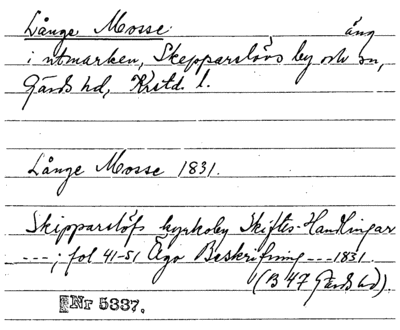 Långe Mosse äng
i utmarken, Skepparslövs by och sn,
Gärds hd, Krstd. l.
Långe Mosse 1831.
Skipparslöfs kyrkoby Skiftes-Handlingar
---; fol 41-51 Ägo Beskrifning --- 1831.
(B 47 Gärds hd).
Nr 5337.